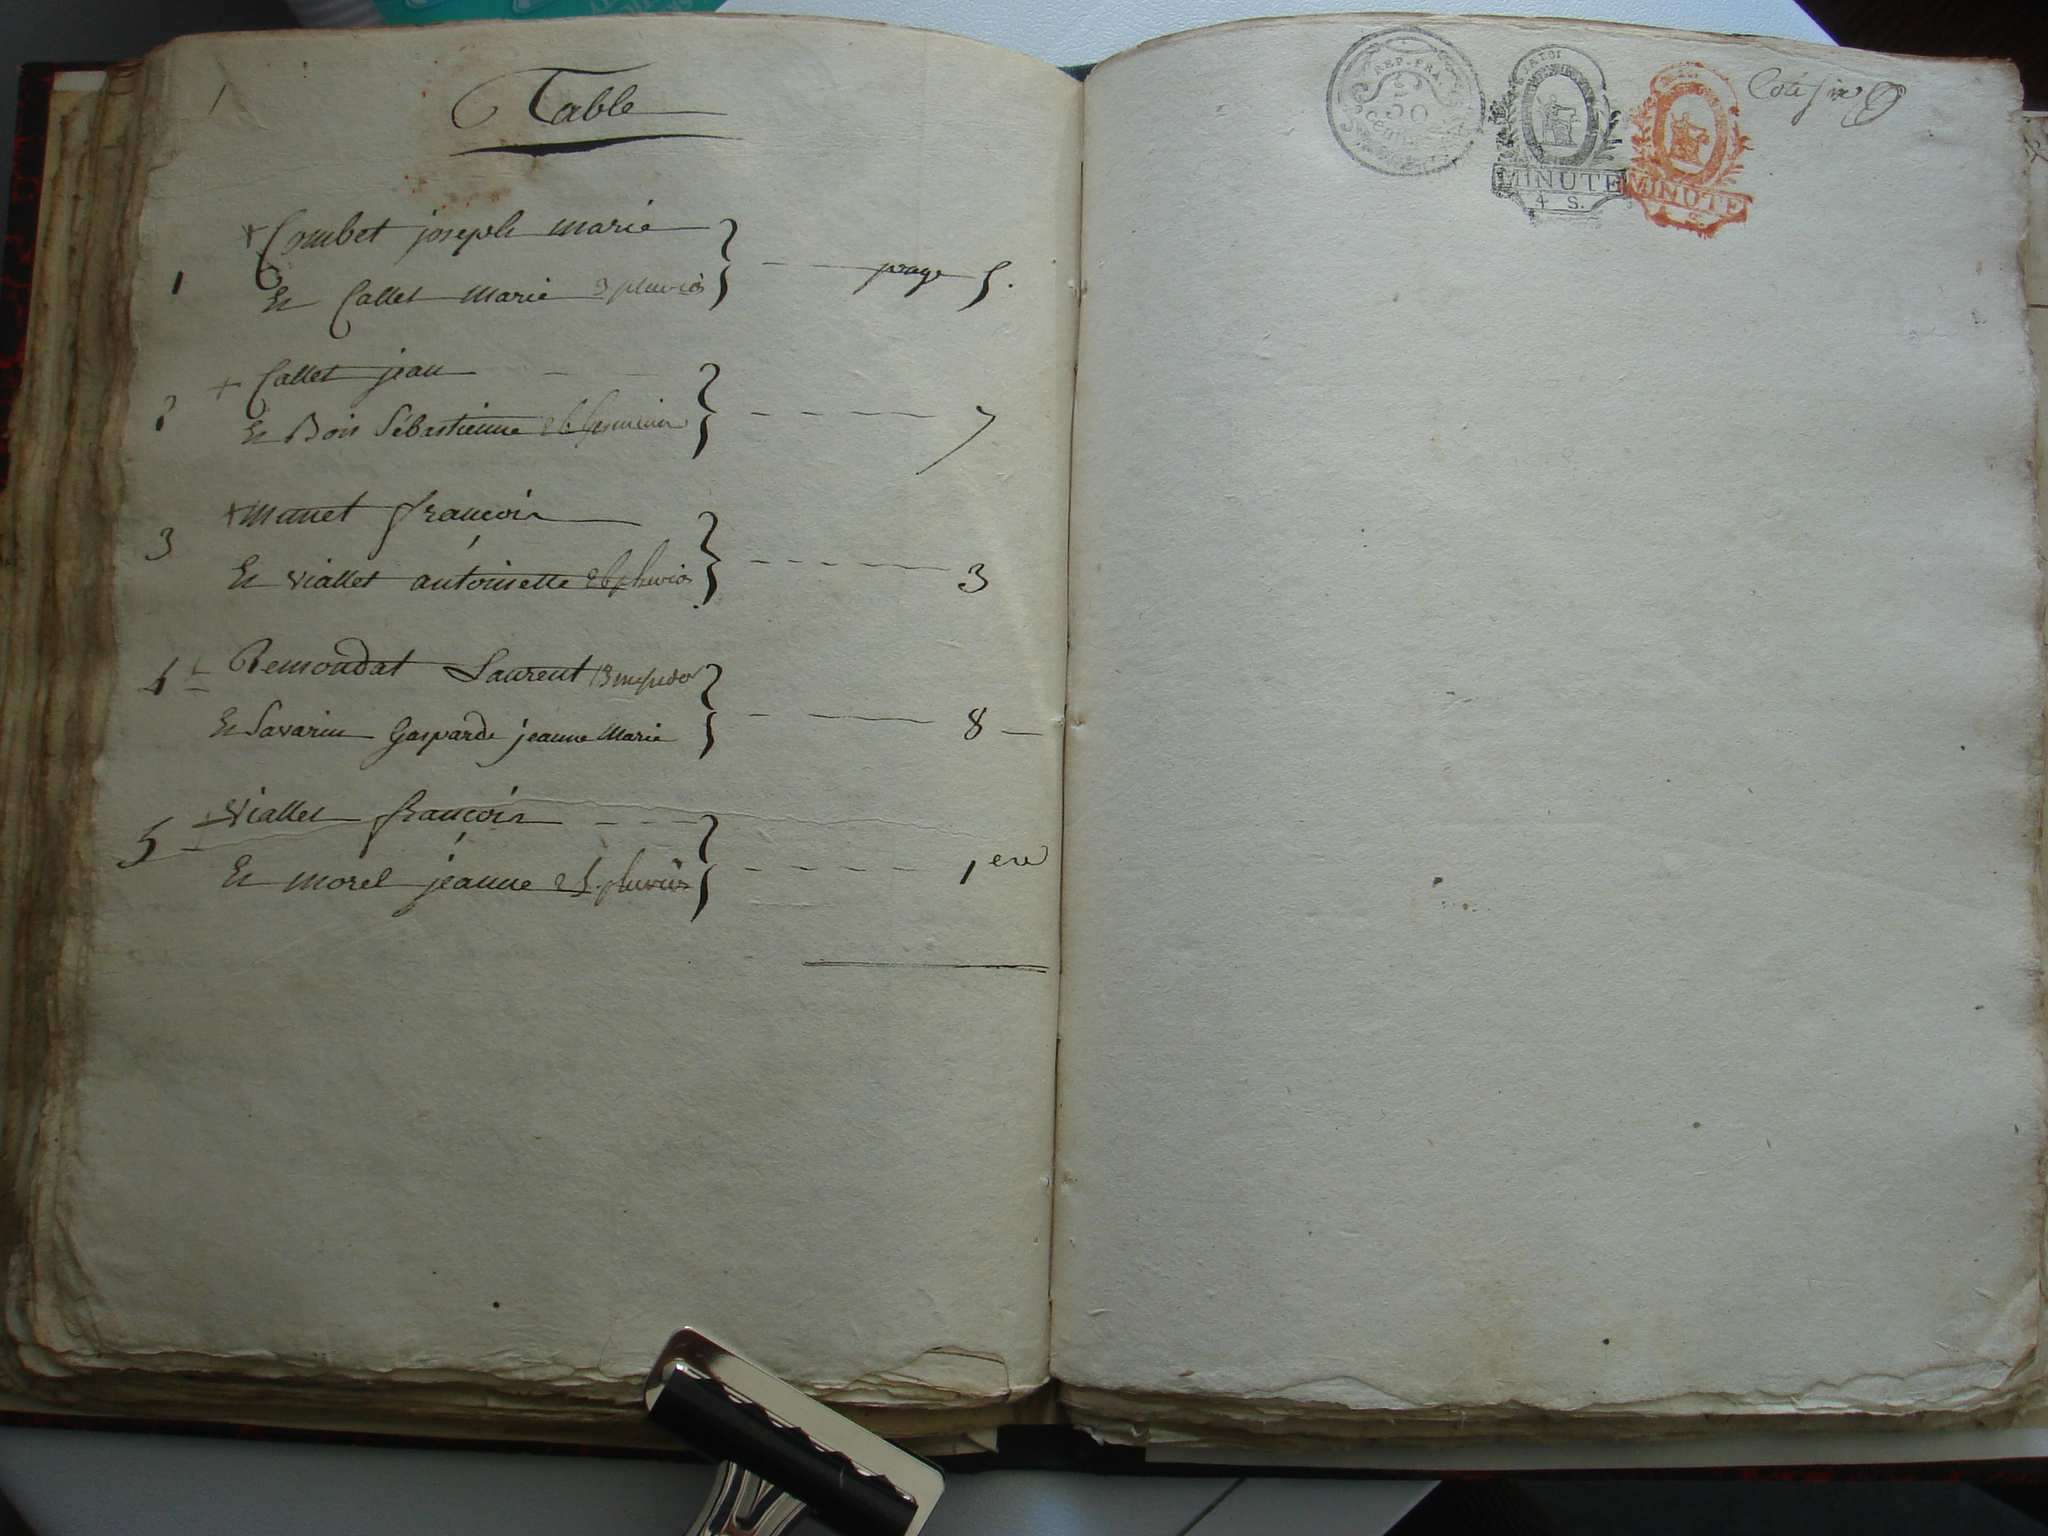 Table
+ Combet joseph marie
1
Et Callet marie 9 pluvios
page 5.
+ Callet jean
2
Et Bois Sébastienne 26 germinal
7
+ manet françois
3
Et viallet antoinette 26 pluvios
3
4 + Remondat Laurent 13 messidor
Et Savarin Gasparde jeanne Marie
8
+ Viallet françois
5
Et morel jeanne 25 pluviôs
1ere
REP. FRA.
50
CENT.
LA LOI
MINUTE
4 S.
MINUTE
S.
Coté